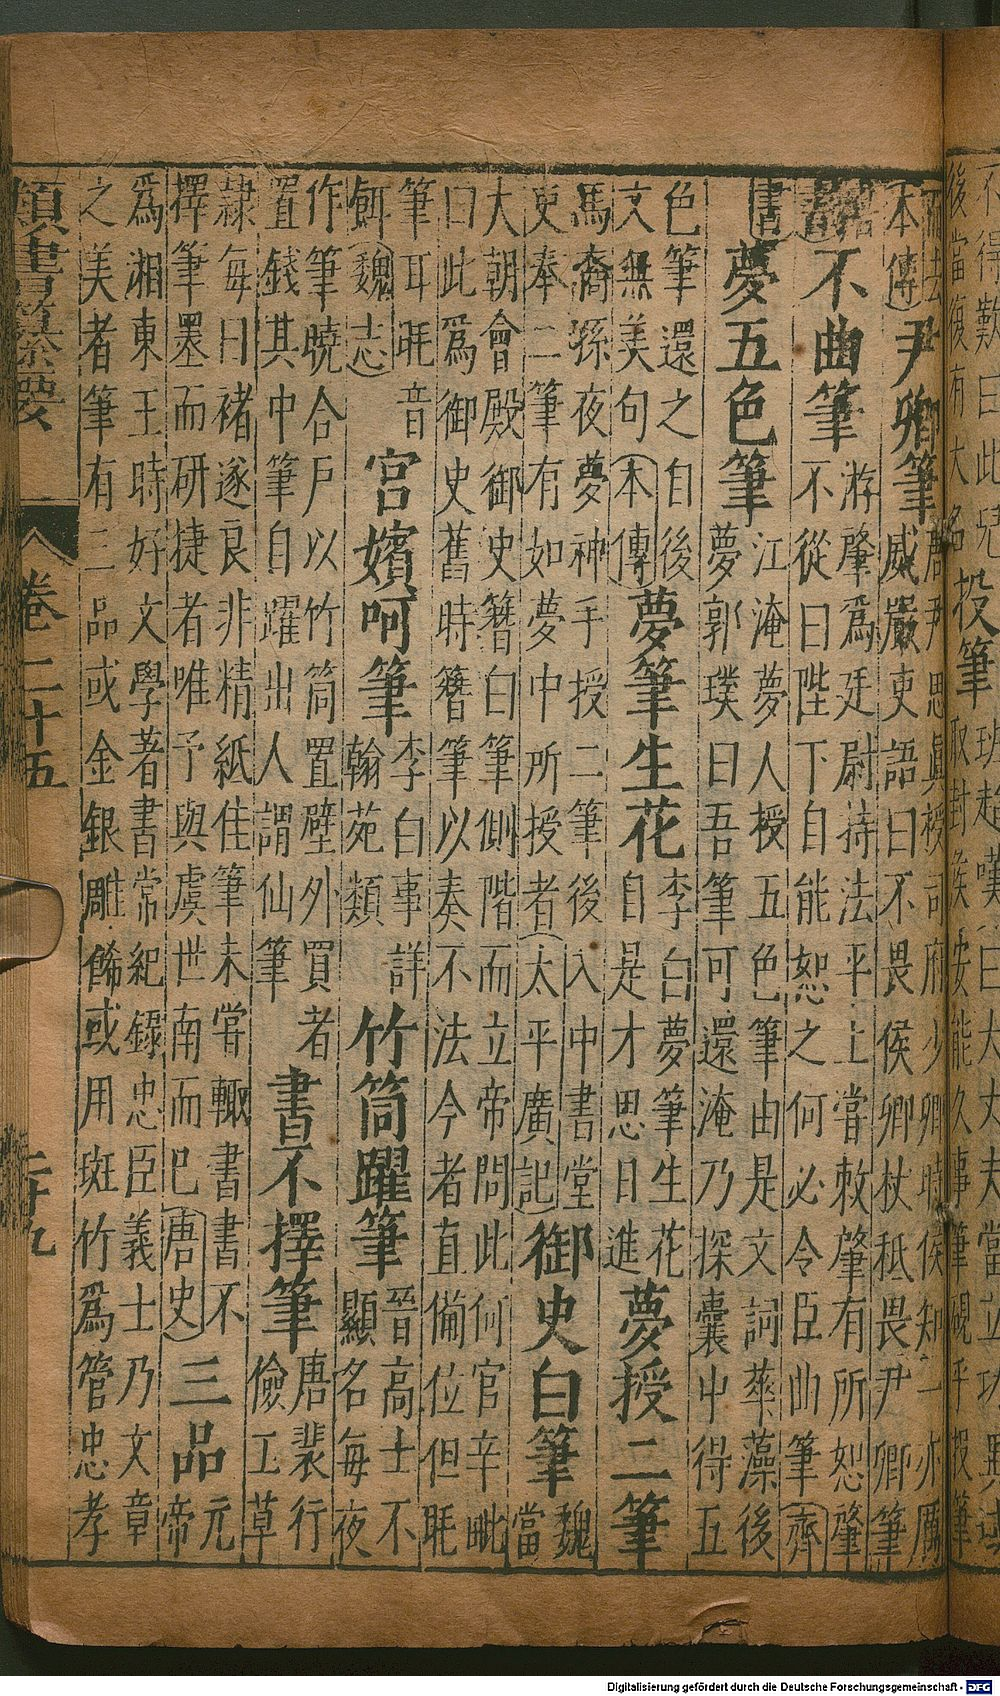 不得歎曰此兒
後當復有大名
投筆
班超嘆曰大丈夫當立功異域
取封侯安能久事筆硯乎投筆
而去
本傳
尹卿筆
唐尹思貞授司府少卿時侯知一亦厲
威嚴吏語曰不畏侯卿杖秪畏尹卿筆
書
不曲筆
游肇爲廷尉持法平上嘗敕肇有所恕肇
不從曰陛下自能恕之何必令臣曲筆齊
書
夢五色筆
江淹夢人授五色筆由是文詞華藻後
夢郭璞曰吾筆可還淹乃探囊中得五
色筆還之自後
文無美句本傳
夢筆生花
李白夢筆生花
自是才思日進
夢授二筆
馬裔孫夜夢神手授二筆後入中書堂
吏奉二筆有如夢中所授者太平廣記
御史白筆
魏
當
大朝會殿御史簪白筆側階而立帝問此何官辛毗
曰此爲御史舊時簪筆以奏不法今者直備位但眊
筆耳眊音
餌魏志
宮嬪呵筆
李白事詳
翰苑類
竹筒躍筆
晉高士不
顯名每夜
作筆曉合戸以竹筒置壁外買者
置錢其中筆自躍出人謂仙筆
書不擇筆
唐裴行
儉工草
隷每曰褚遂良非精紙佳筆未嘗輙書書不
擇筆墨而研捷者唯予與虞世南而巳唐史
三品
元
帝
爲湘東王時好文學著書常紀錄忠臣義士乃文章
之美者筆有三品或金銀雕餙或用斑竹爲管忠孝
類書纂要 卷二十五 二十九
Digitalisierung gefördert durch die Deutsche Forschungsgemeinschaft - DFG